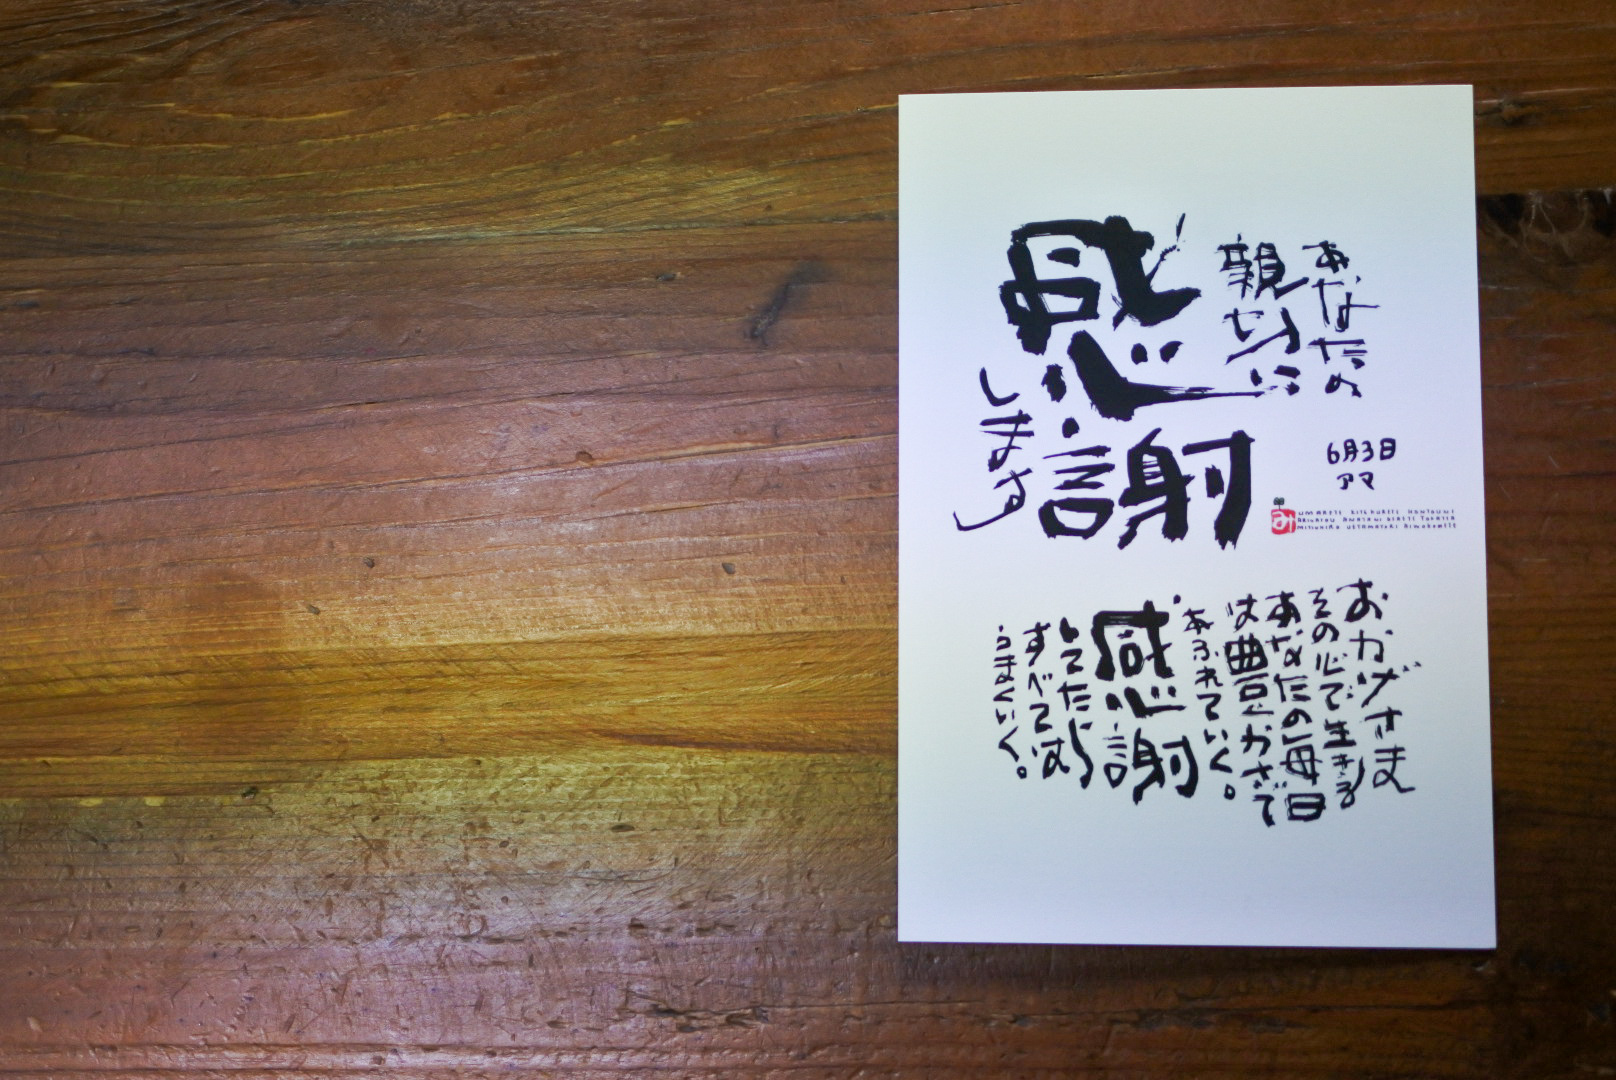 あなたの
親切に
感謝
します
6月3日
アマ
み
UMARETE KITEKURETE HONTOUNI
おかげさま
その心で生きる
あなたの毎日
は豊かさで
あふれていく。
感謝
してたら
すべては
うまくいく。